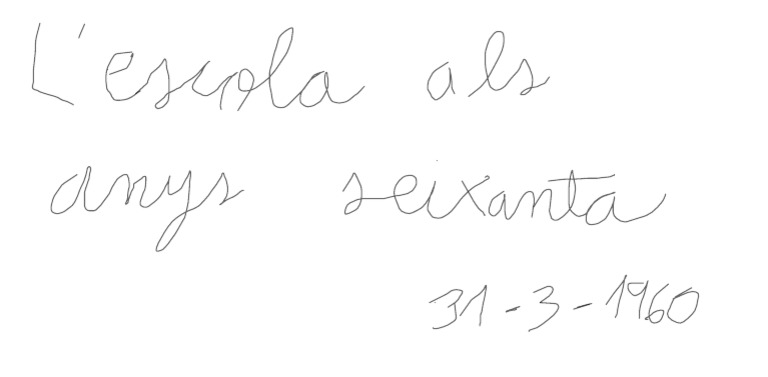 L'escola als
anys seixanta
31-3-1960